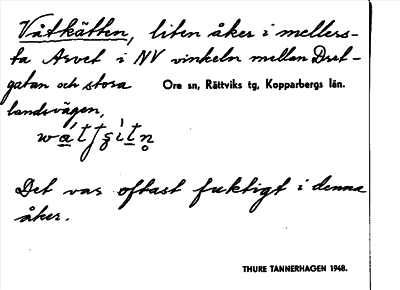 Våtkätten, liten åker i mellers-
ta Arvet i NV vinkeln mellan Dret-
gatan och stora Ore sn, Rättviks tg, Kopparbergs län.
landsvägen,
Det var oftast fuktigt i denna
åker.
THURE TANNERHAGEN 1948.